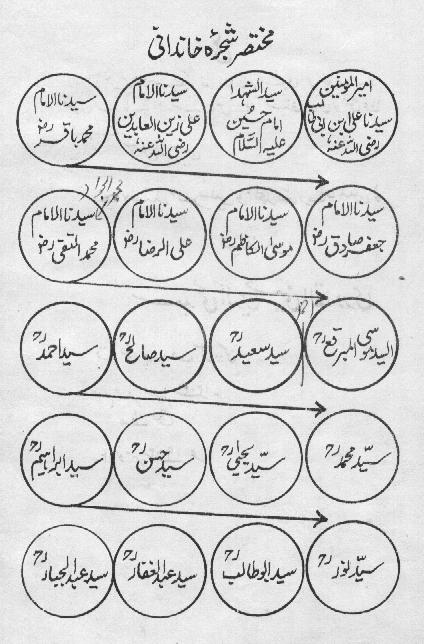 مختصر شجرۂ خاندانی
امیر المؤمنین
سیدنا علی ابن ابی طالب
رضی اللہ عنہ
سید الشہدا
امام حسین
علیہ السلام
سیدنا الامام
علی زین العابدین
رضی اللہ عنہ
سیدنا الامام
محمد باقر رضہ
سیدنا الامام
جعفر صادق رضہ
سیدنا الامام
موسیٰ الکاظم رضہ
سیدنا الامام
علی الرضا رضہ
سیدنا الامام
محمد التقی رضہ
السید موسیٰ المبرقع رح
سید سعید رح
سید صالح رح
سید احمد رح
سیّد محمد رح
سیّد یحییٰ رح
سید حسن رح
سید ابراہیم رح
سیّد نور رح
سید ابو طالب رح
سید عبد الغفار رح
سید عبد الجبار رح